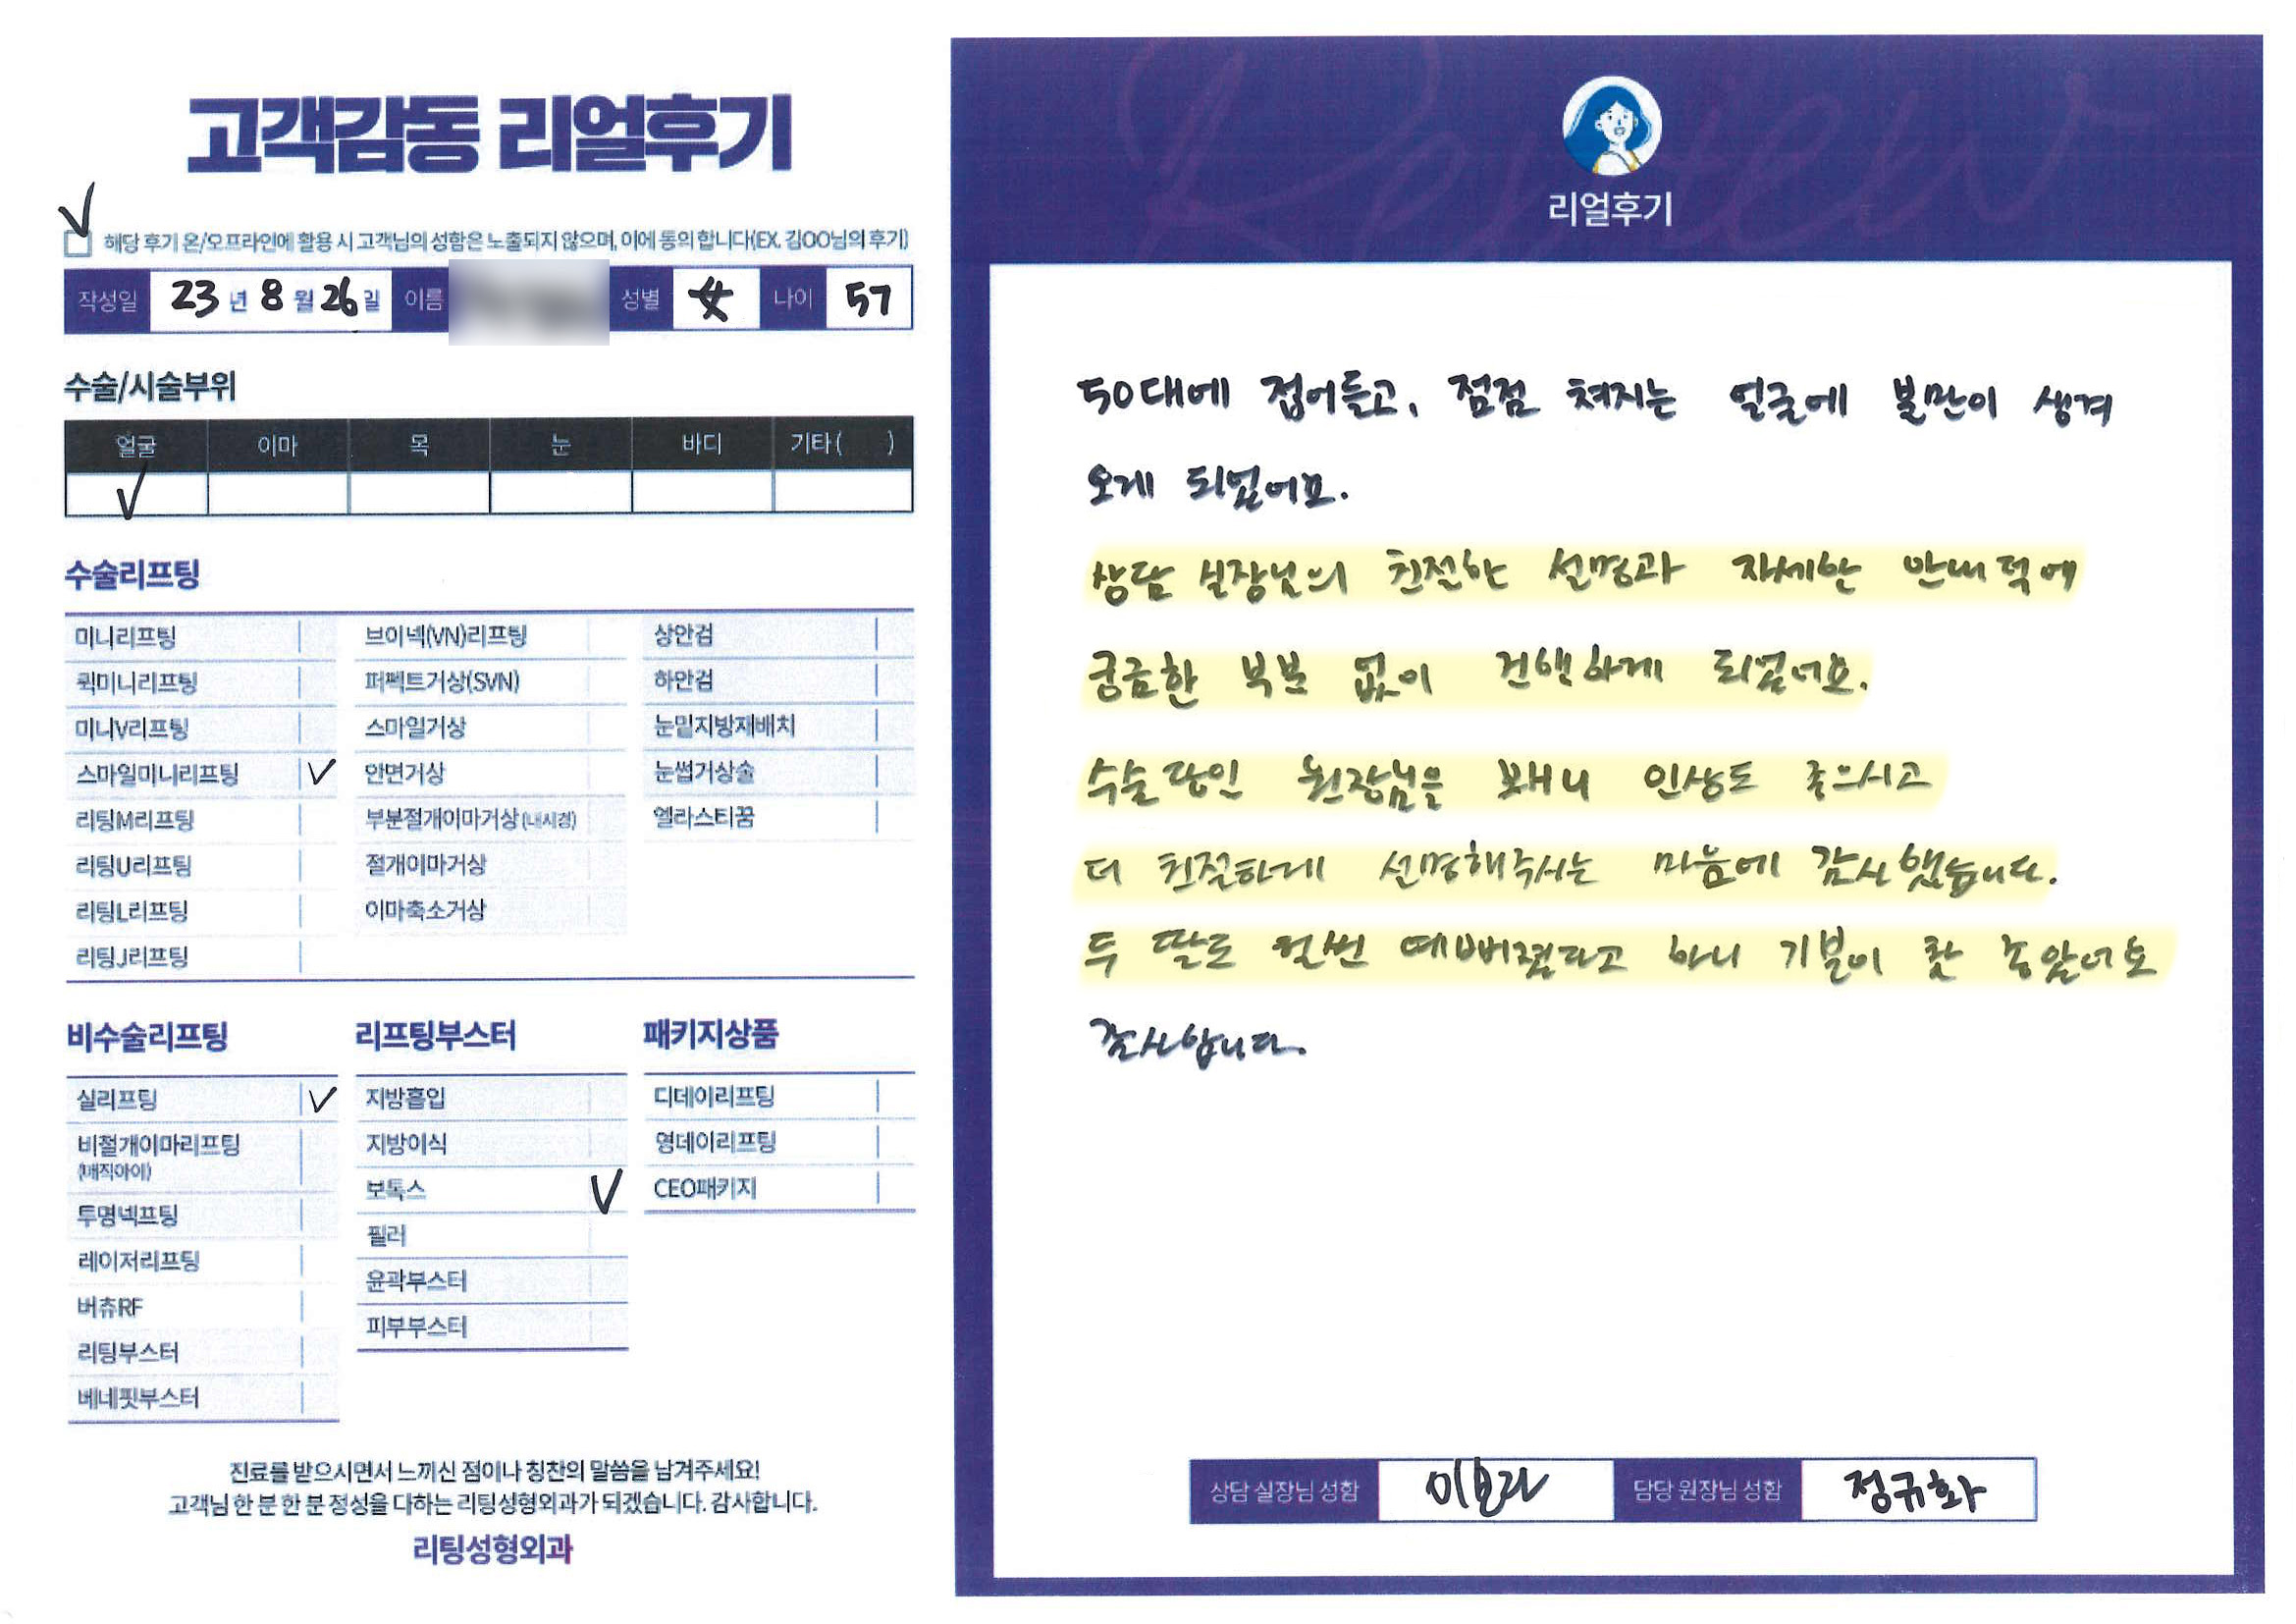 고객감동 리얼후기
해당 후기 온/오프라인에 활용 시 고객님의 성함은 노출되지 않으며, 이에 동의 합니다(EX. 김OO님의 후기)
작성일 23년 8월 26일 이름 성별 女 나이 57
수술/시술부위
얼굴 이마 목 눈 바디 기타( )
수술리프팅
미니리프팅 브이넥(VN)리프팅 상안검
퀵미니리프팅 퍼펙트거상(SVN) 하안검
미니V리프팅 스마일거상 눈밑지방재배치
스마일미니리프팅 안면거상 눈썹거상술
리팅M리프팅 부분절개이마거상(내시경) 엘라스티꿈
리팅U리프팅 절개이마거상
리팅L리프팅 이마축소거상
리팅J리프팅
비수술리프팅 리프팅부스터 패키지상품
실리프팅 지방흡입 디데이리프팅
비절개이마리프팅 지방이식 영데이리프팅
(매직아이)
보톡스 CEO패키지
투명넥프팅 필러
레이저리프팅 윤곽부스터
버츄RF 피부부스터
리팅부스터
베네핏부스터
진료를 받으시면서 느끼신 점이나 칭찬의 말씀을 남겨주세요!
고객님 한 분 한 분 정성을 다하는 리팅성형외과가 되겠습니다. 감사합니다.
리팅성형외과
Review
리얼후기
50대에 접어들고, 점점 쳐지는 얼굴에 불만이 생겨
오게 되었어요.
상담 실장님의 친절한 설명과 자세한 안내 덕에
궁금한 부분 없이 진행하게 되었어요.
수술 당인 원장님을 뵈니 인상도 좋으시고
더 친절하게 설명해주시는 마음에 감사했습니다.
두 딸도 훨씬 예뻐졌다고 하니 기분이 참 좋았어요
감사합니다.
상담 실장님 성함 이보라 담당 원장님 성함 정규화